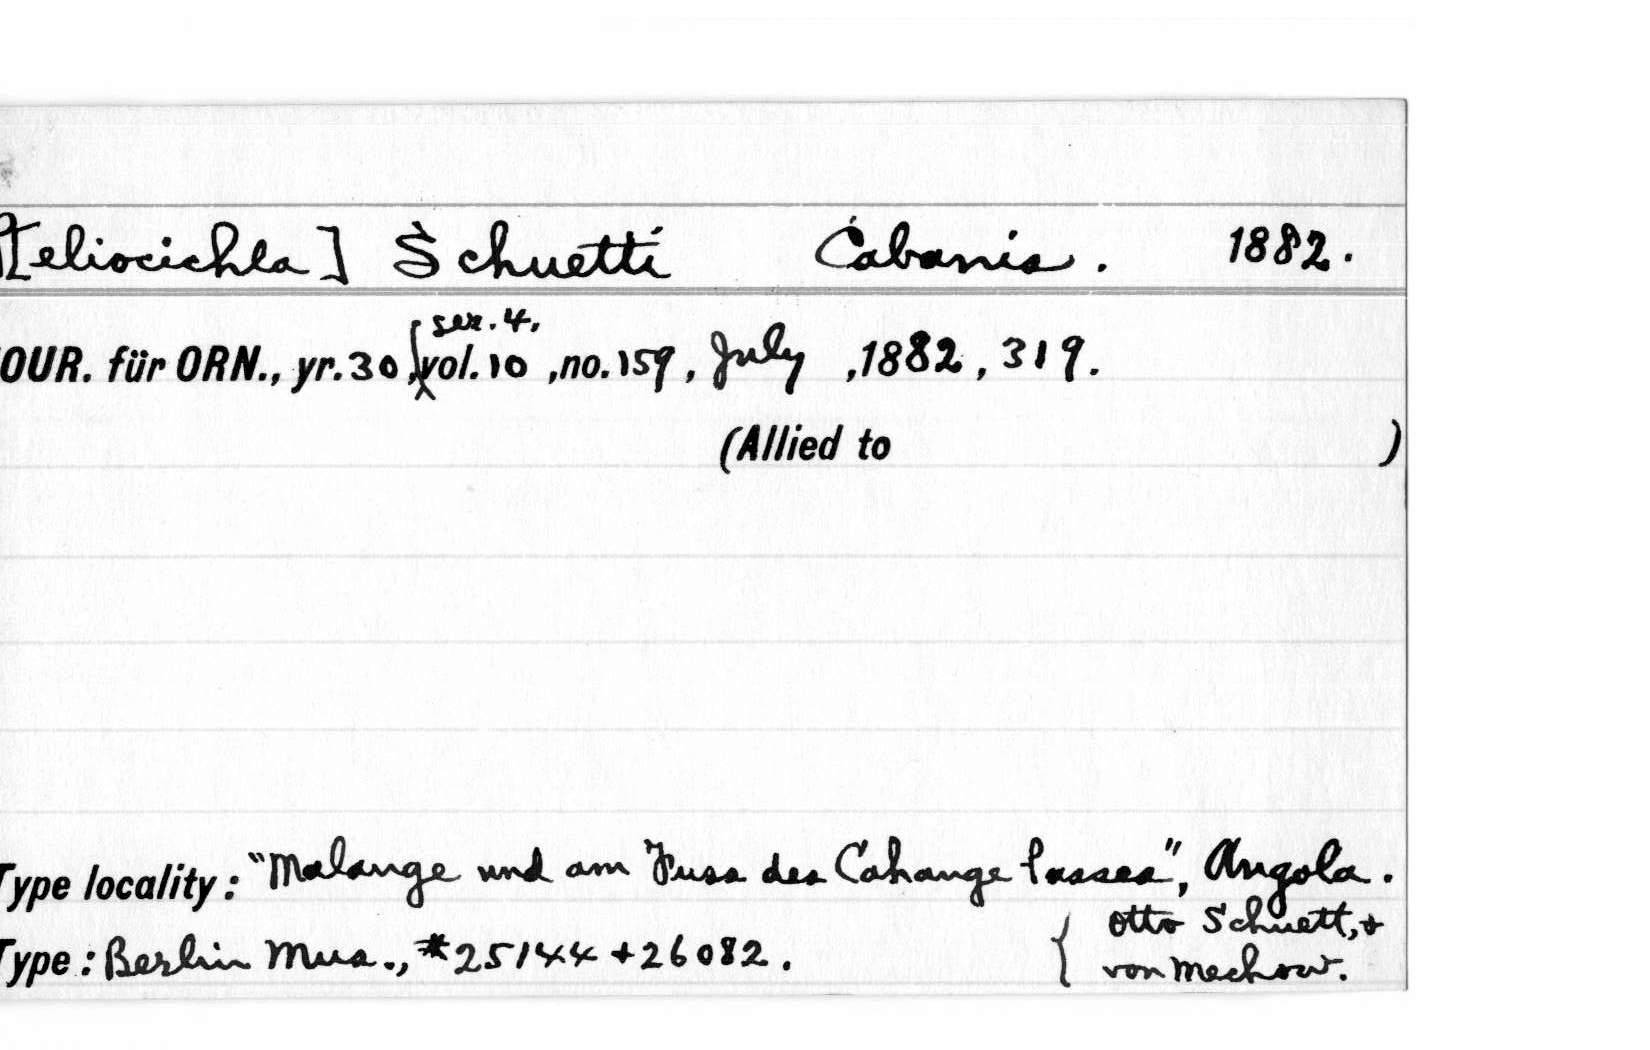 [eliocichla] Schuetti Cabanis. 1882.
OUR. für ORN., yr. 30, ser. 4, vol. 10, no. 159, July, 1882, 319.
(Allied to )
Type locality: "Malange und am Fuss des Cahange Passes", Angola.
Otto Schuett, +
Type: Berlin Mus., #25144 + 26082. von Mechow.